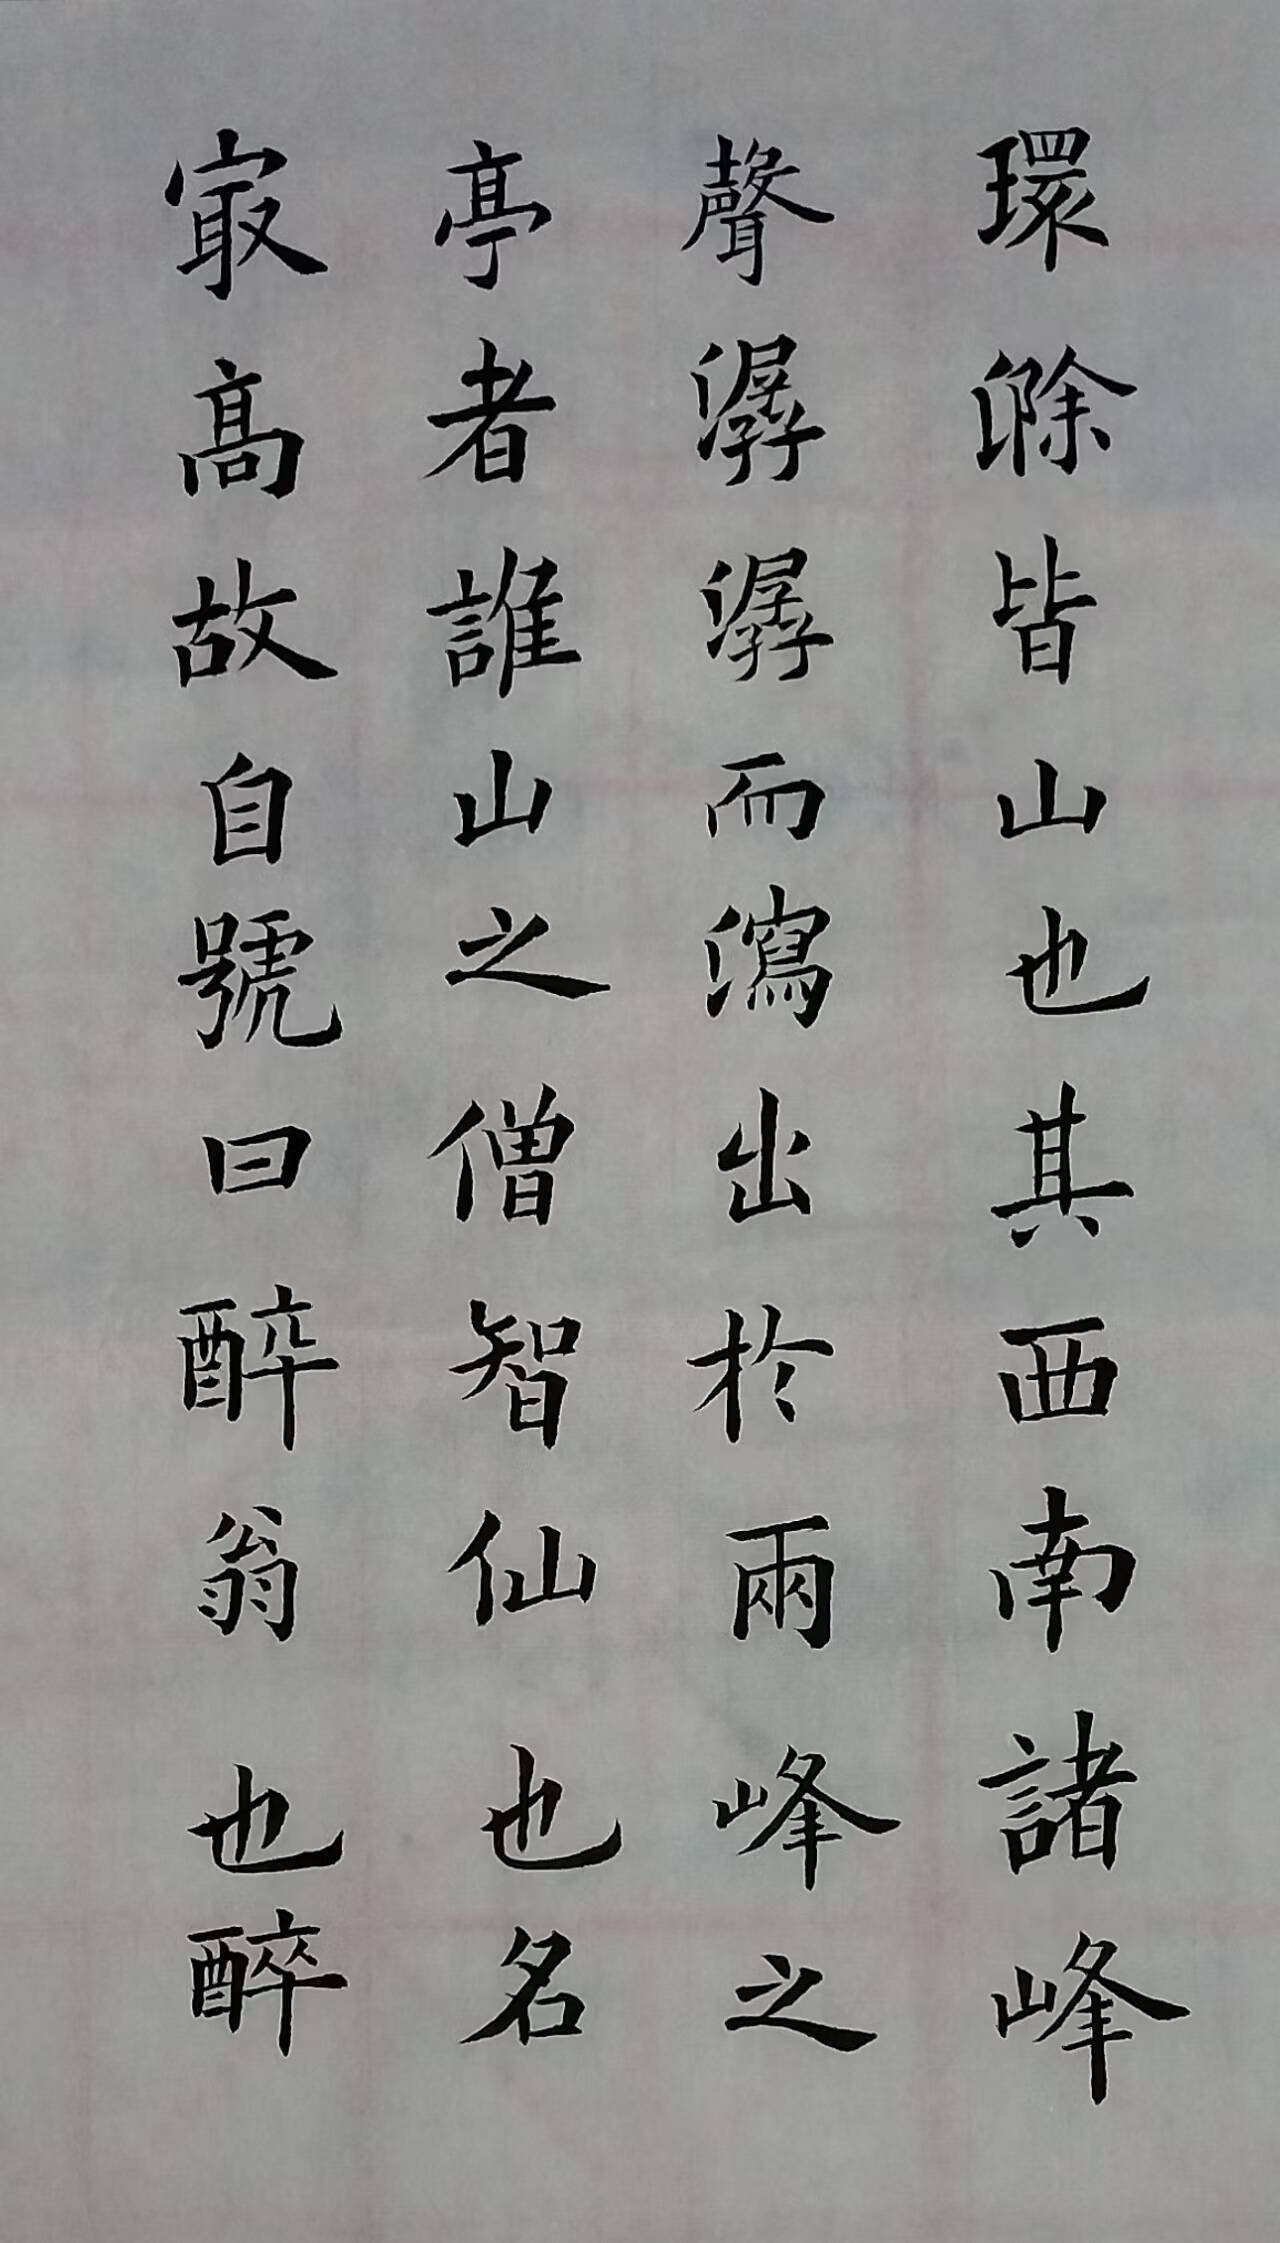 環滁皆山也其西南諸峰
聲潺潺而瀉出於兩峰之
亭者誰山之僧智仙也名
㝡高故自號曰醉翁也醉